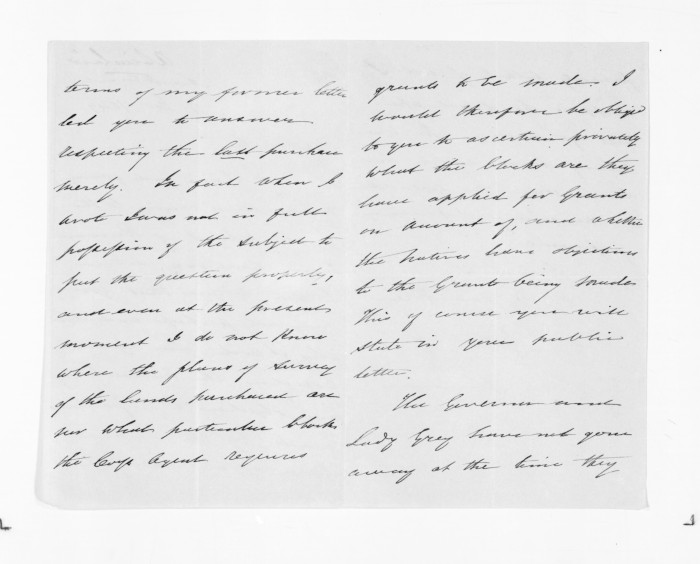 terms of my former letter
led you to answer
respecting the last purchase
merely. In fact when I
wrote I was not in full
possession of the subject to
put the question properly,
and even at the present
moment I do not know
where the plans of survey
of the lands purchased are
nor what particular blocks
the Coys Agent requires
grants to be made. I
would therefore be obliged
to you to ascertain privately
what the blocks are they
have applied for Grants
on amount of, and whether
the natives have objections
to the Grants being made
This of course you will
state in your public
letter.
The Governor and
Lady Grey have not gone
away at the time they